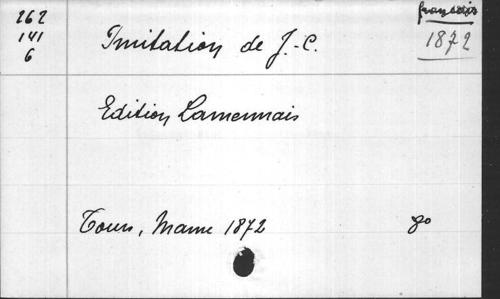 262
141
6
français
1872
Imitation de J.-C.
Edition Lamennais
Tours, Mame 1872
8o